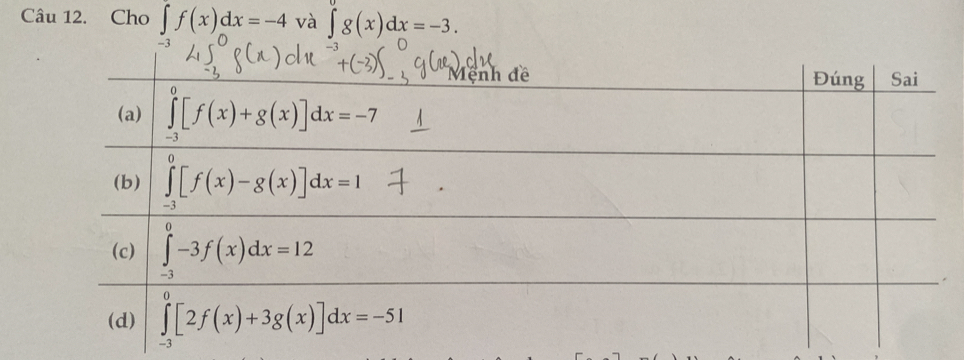 Câu 12. Cho ∫₋₃⁰ f(x)dx = −4 và ∫₋₃⁰ g(x)dx = −3.
4∫₋₃⁰ f(x)dx + (-3)∫₋₃⁰ g(x)dx
Mệnh đề Đúng Sai
(a) ∫₋₃⁰ [f(x)+g(x)]dx = −7 1
(b) ∫₋₃⁰ [f(x)−g(x)]dx = 1 7 .
(c) ∫₋₃⁰ −3f(x)dx = 12
(d) ∫₋₃⁰ [2f(x)+3g(x)]dx = −51